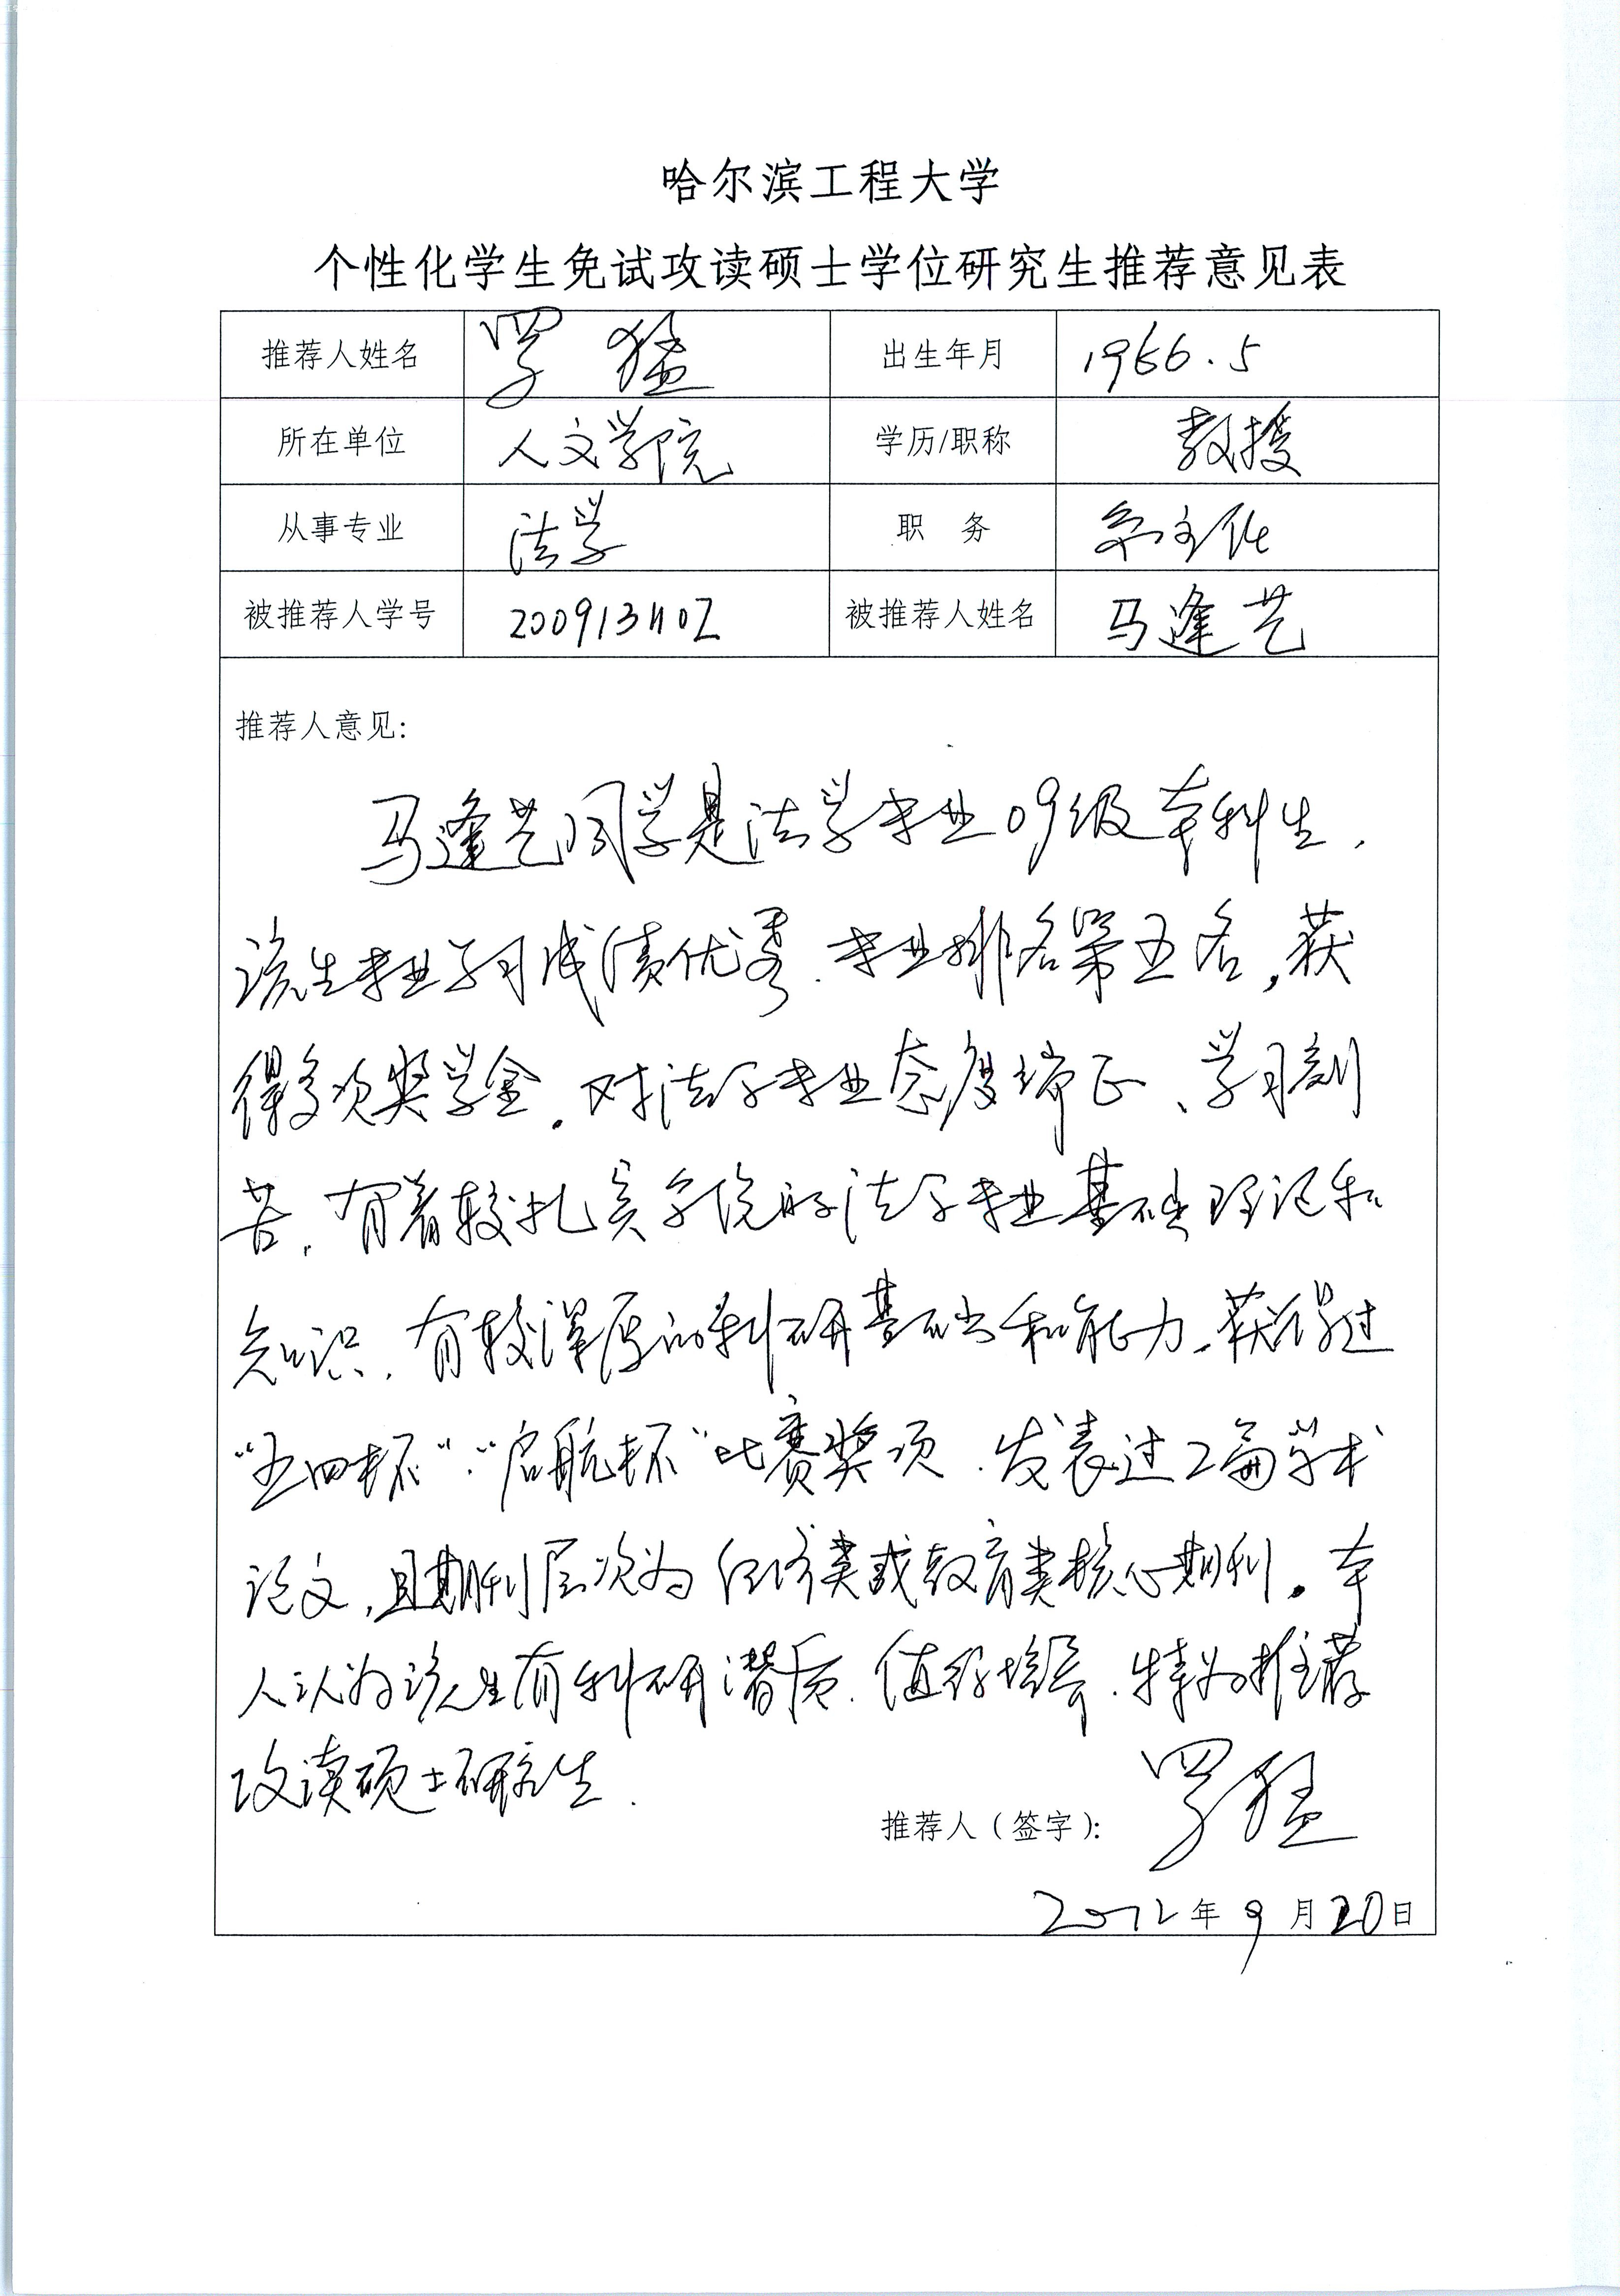 哈尔滨工程大学
个性化学生免试攻读硕士学位研究生推荐意见表
推荐人姓名 罗猛 出生年月 1966.5
所在单位 人文学院 学历/职称 教授
从事专业 法学 职务 系主任
被推荐人学号 2009131102 被推荐人姓名 马逢艺
推荐人意见:
马逢艺同学是法学专业09级本科生.
该生专业学习成绩优秀.专业排名第五名,获
得多项奖学金.对法学专业态度端正、学习刻
苦.有着较扎实系统的法学专业基础理论和
知识.有较深厚的科研基础和能力.获得过
“五四杯”.“启航杯”比赛奖项.发表过2篇学术
论文,且期刊层次为经济类或教育类核心期刊.本
人认为该生有科研潜质.值得培养.特为推荐
攻读硕士研究生.
推荐人(签字): 罗猛
2012年9月20日